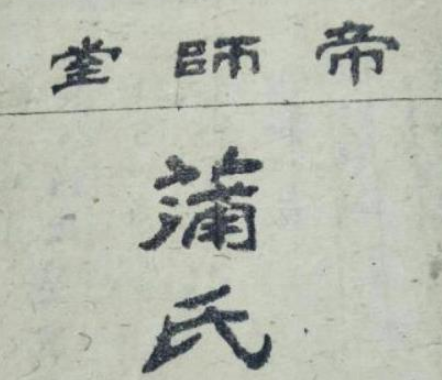 帝師堂
蒲氏